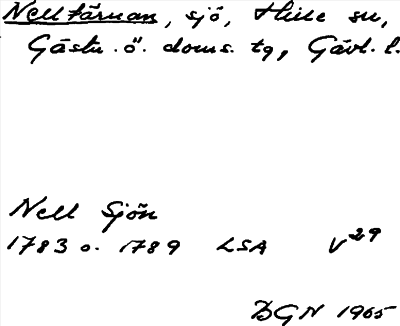 Nelltärnan, sjö, Hille sn,
Gästr. ö. doms. tg, Gävl. l.
Nell Sjön
1783 o. 1789 LSA V29
DGN 1965